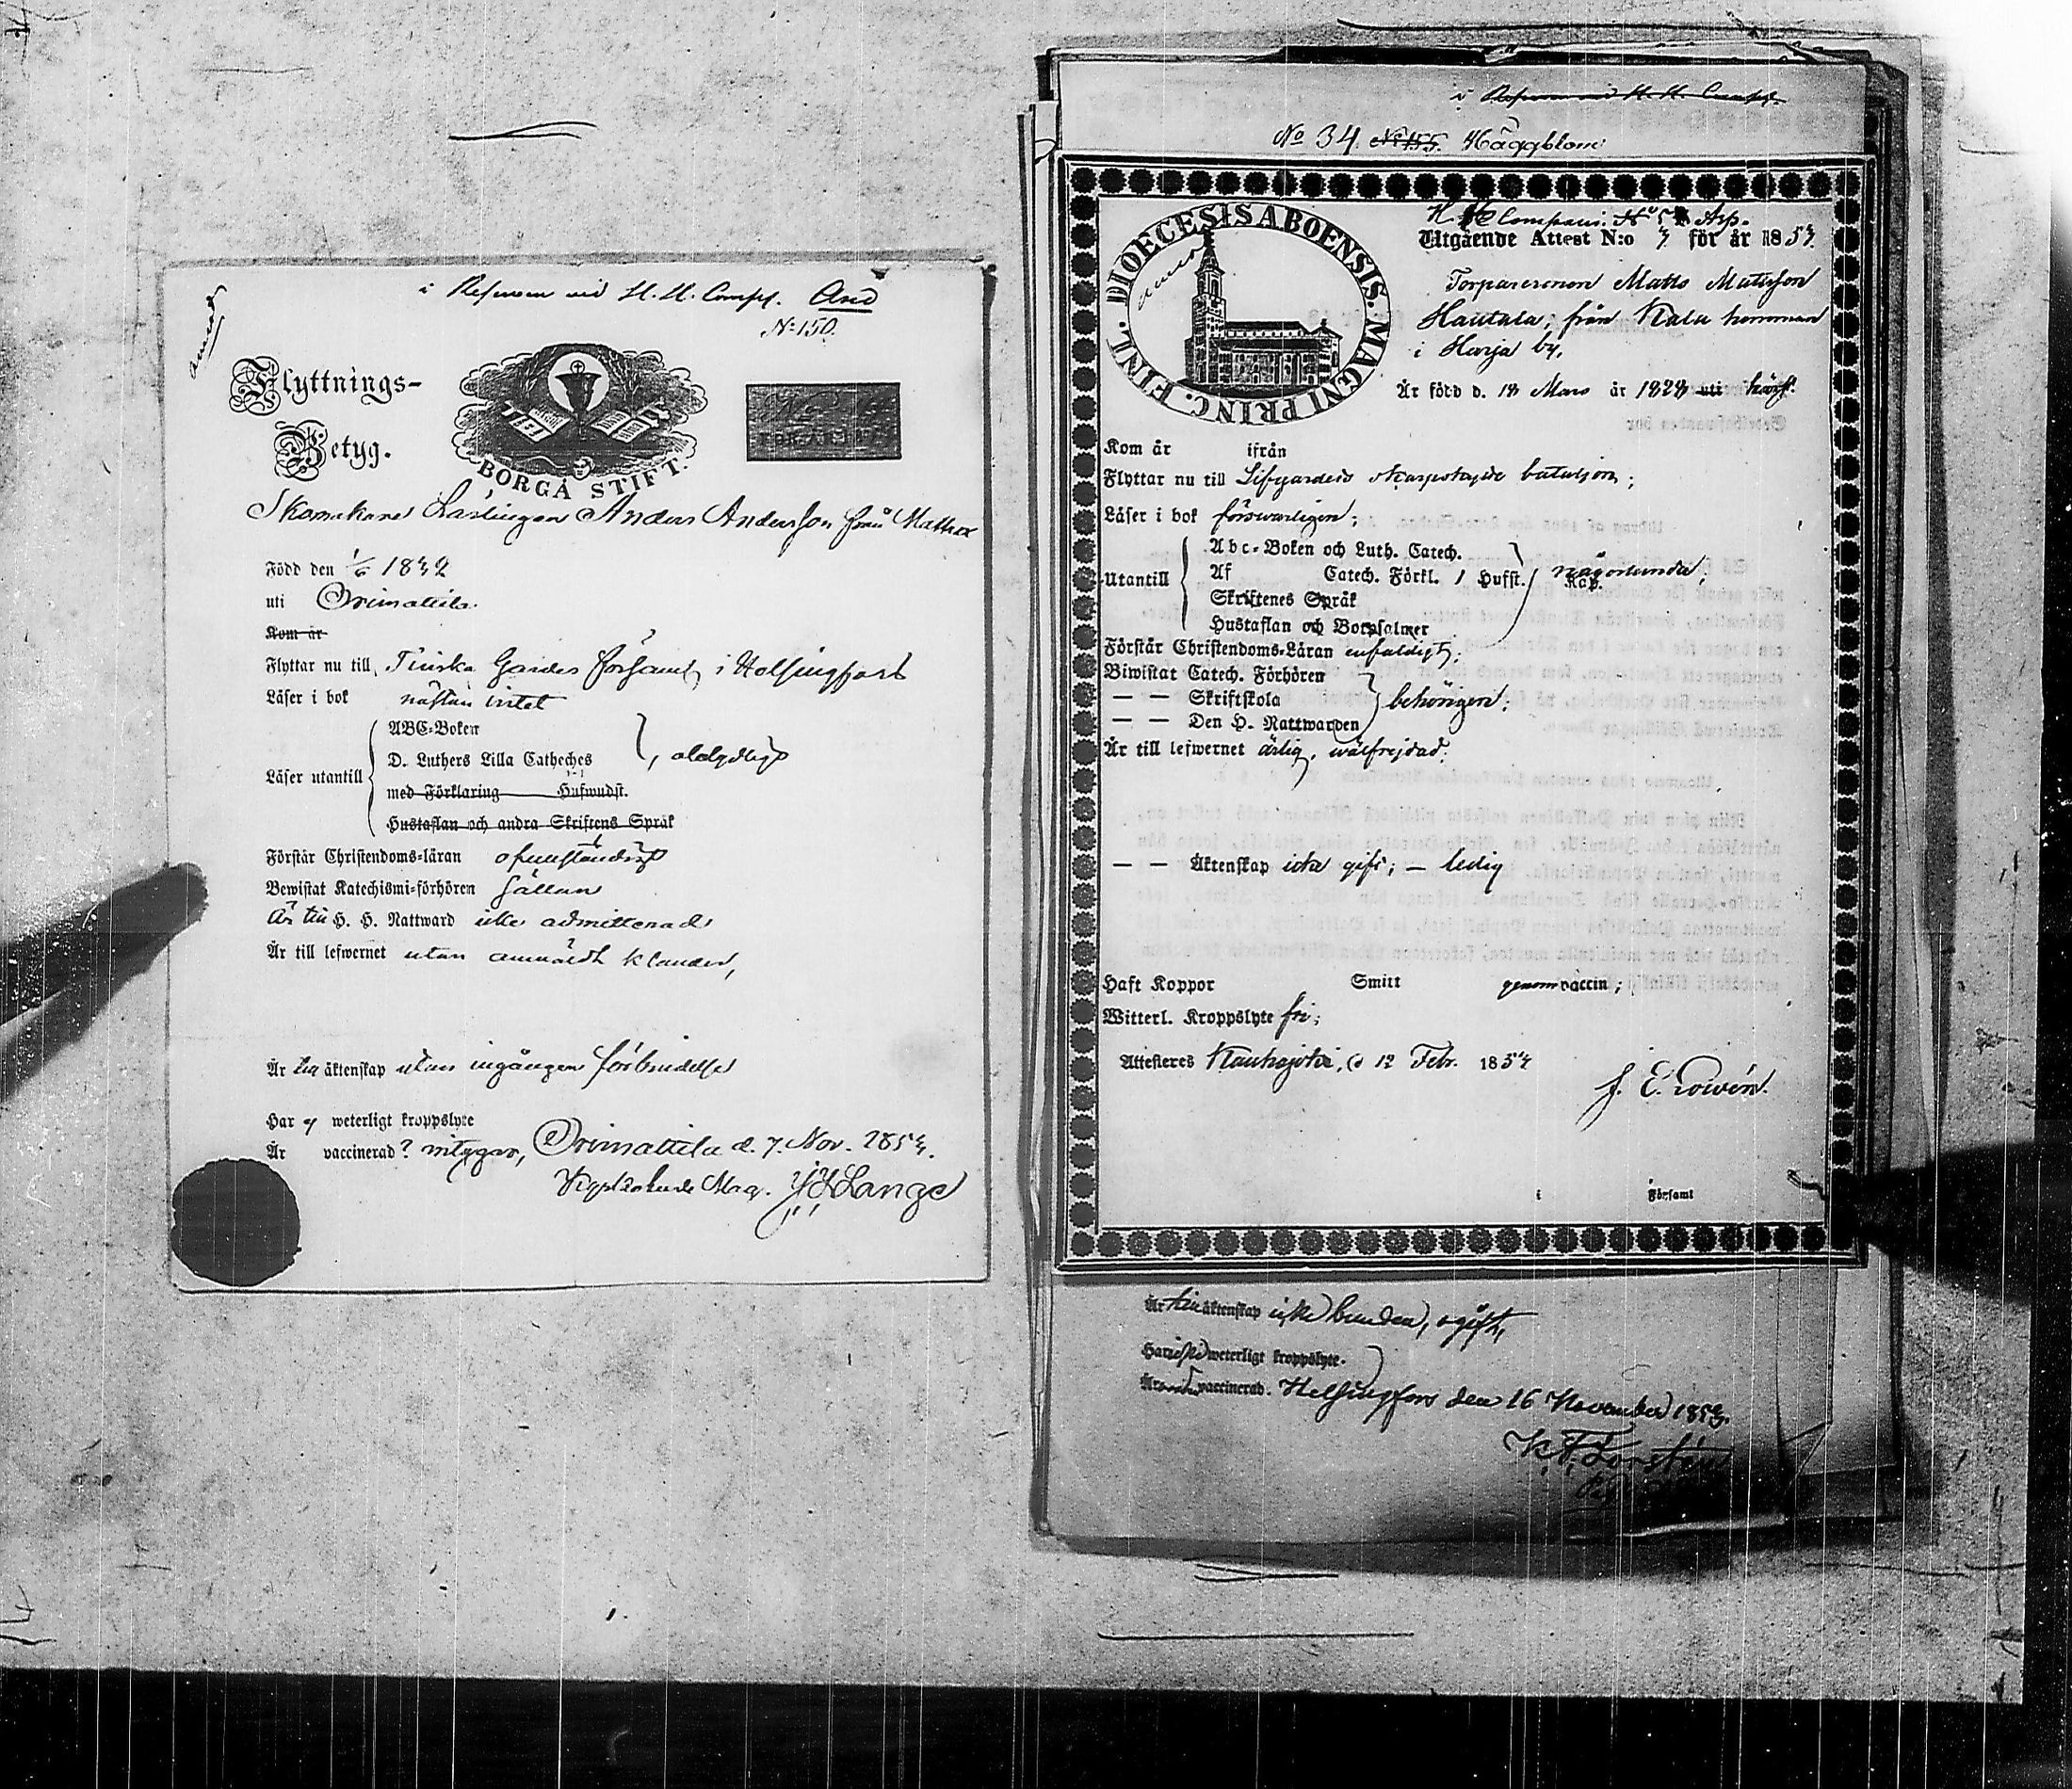 i Reserven vid H. H. Comp. And
No 150.
Flyttnings-
Betyg.
BORGÅ STIFT.
Skomakare Lärlingen Anders Andersson från Mattila
Född den 1/6 1832
uti Orimattila.
Kom år
Flyttar nu till Finska Gardes församl. i Helsingfors
Läser i bok nästan intet
Läser utantill
ABC-Boken
D. Luthers Lilla Catheches
med Förklaring Hufwudst.
Hustaflan och andra Skriftens Språk
Förstår Christendoms-läran ofullständigt
Bewistat Katechismi-förhören sällan
Är till H. H. Nattward icke admitterad
Är till lefwernet utan anmärkt klander,
Är till äktenskap utan ingången förbindelse
Har ej weterligt kroppslyte
Är vaccinerad? intygar, Orimattila d. 7. Nov. 1854.
Lange
i Reserven vid H. H. Comp.
No 34. No 155. Häggblom
DIOECESIS ABOENSIS. MAGNI PRINC. FINL.
Compani. Asp.
Utgående Attest N:o 7 för år 1854.
Torparesonen Matts Mattsson
Hautala, från Kalu hemman
i Harja by.
Är född d. 18 Mars år 1828 uti härst.
Kom år ifrån
Flyttar nu till Lifgardets skarpskytte bataljon;
Läser i bok försvarligen;
Utantill
Abc-Boken och Luth. Catech.
Af Catech. Förkl. 1 Hufst. Kap. någorlunda;
Skriftenes Språk
Hustaflan och Botpsalmer
Förstår Christendoms-Läran enfaldigt;
Biwistat Catech. Förhören
— — Skriftskola behörigen;
— — Den H. Nattwarden
Är till lefwernet ärlig, wälfrejdad;
— — Äktenskap icke gift; — ledig
Haft Koppor Smitt genom vaccin;
Witterl. Kroppslyte fri;
Attesteres Kauhajoki, d 12 Febr. 1854
i Församl
Är till äktenskap icke bunden, ogift,
Har icke weterligt kroppslyte.
Är vaccinerad. Helsingfors den 16 November 1854.